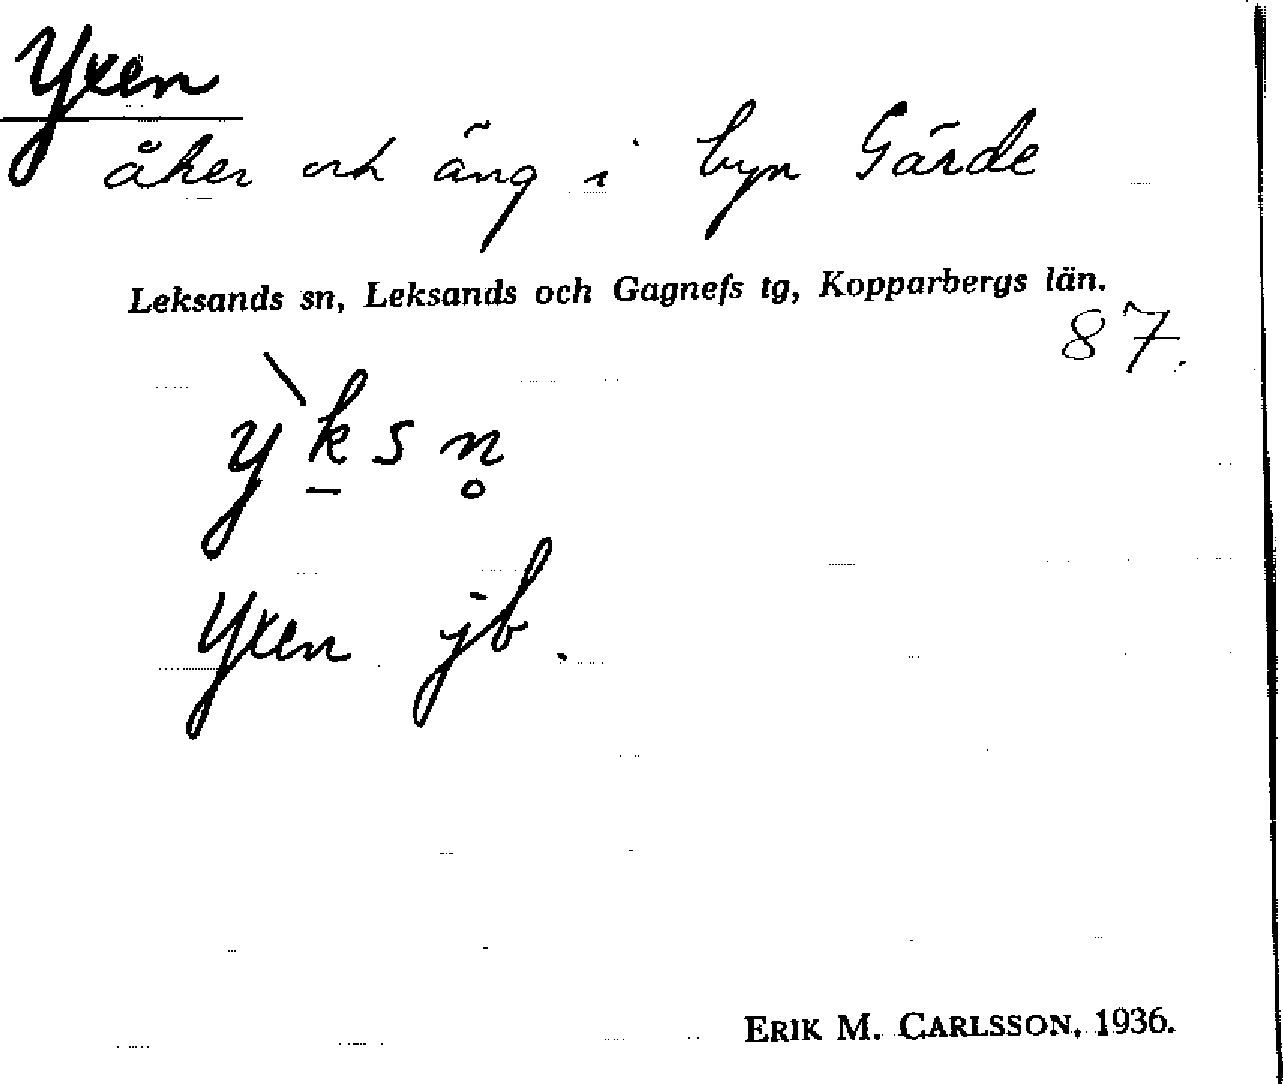 Yxen
åker och äng i byn Gärde
Leksands sn, Leksands och Gagnefs tg, Kopparbergs län.
87.
ỳk̠sn̥
Yxen jb.
ERIK M. CARLSSON, 1936.